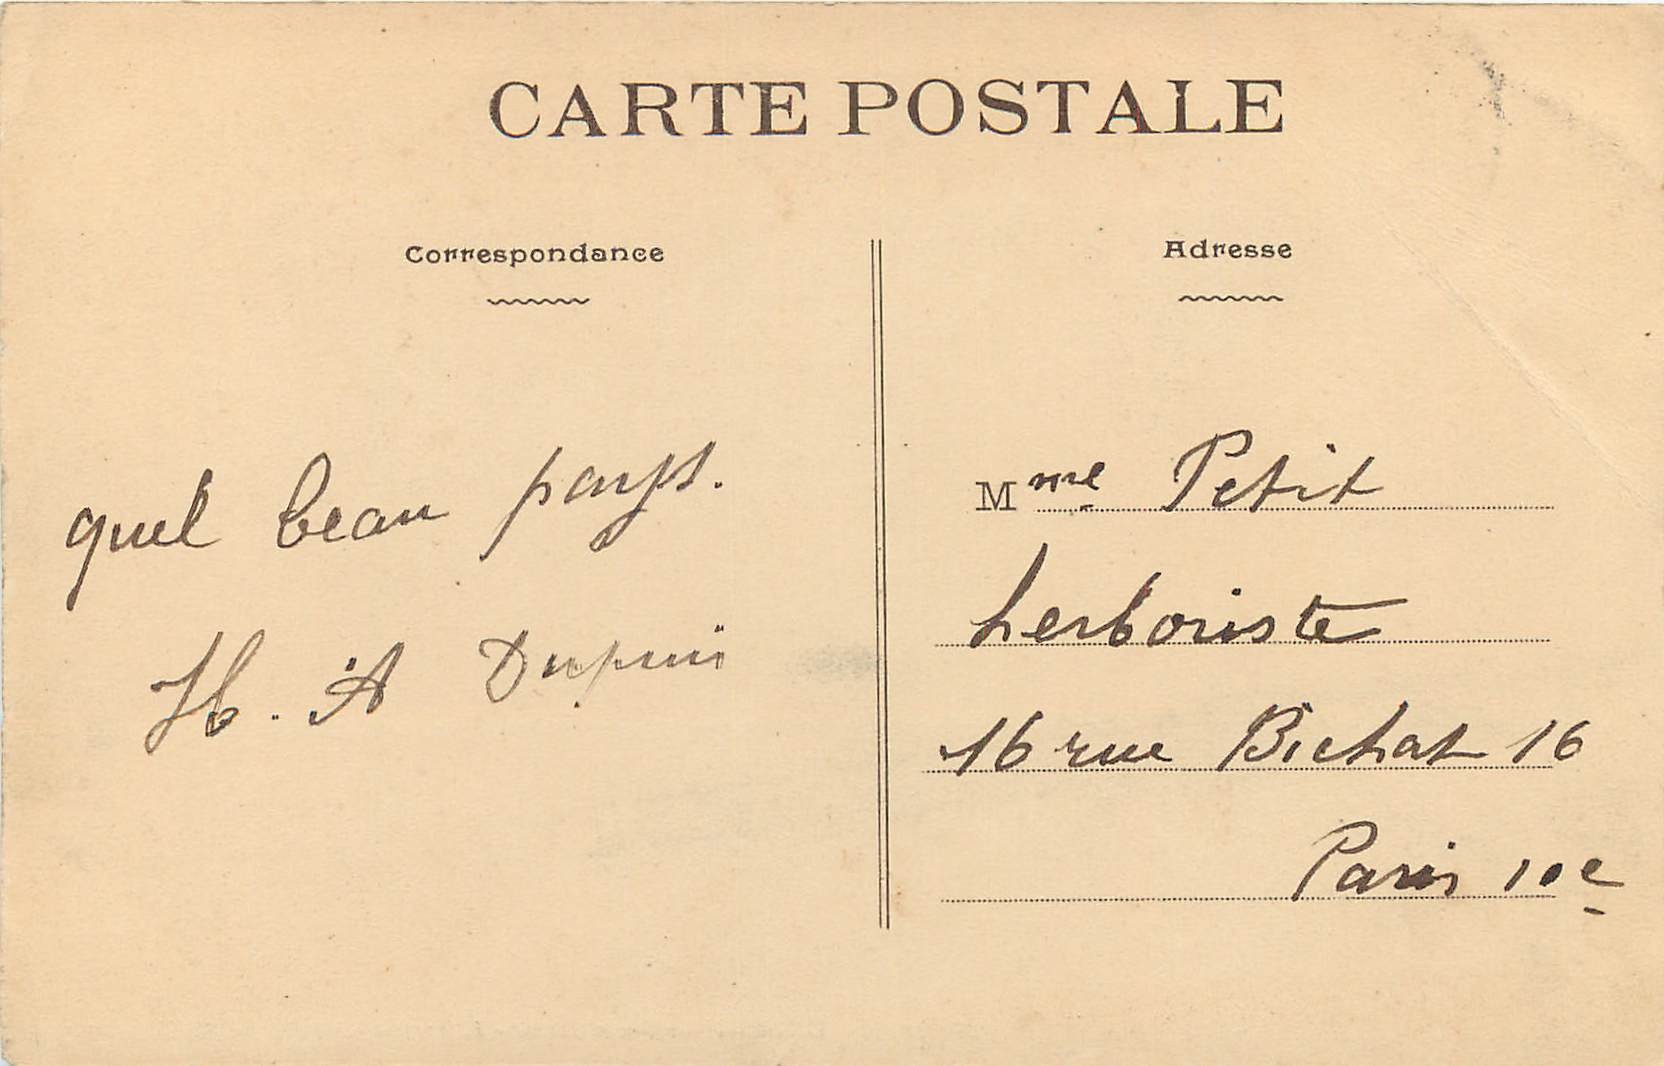 CARTE POSTALE
Correspondance
quel beau pays.
H. A Dupuis
Adresse
Mme Petit
herboriste
16 rue Bichat 16
Paris 10e